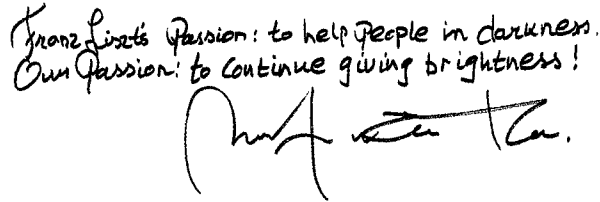 Franz Liszt's Passion: to help People in darkness.
Our Passion: to continue giving brightness!